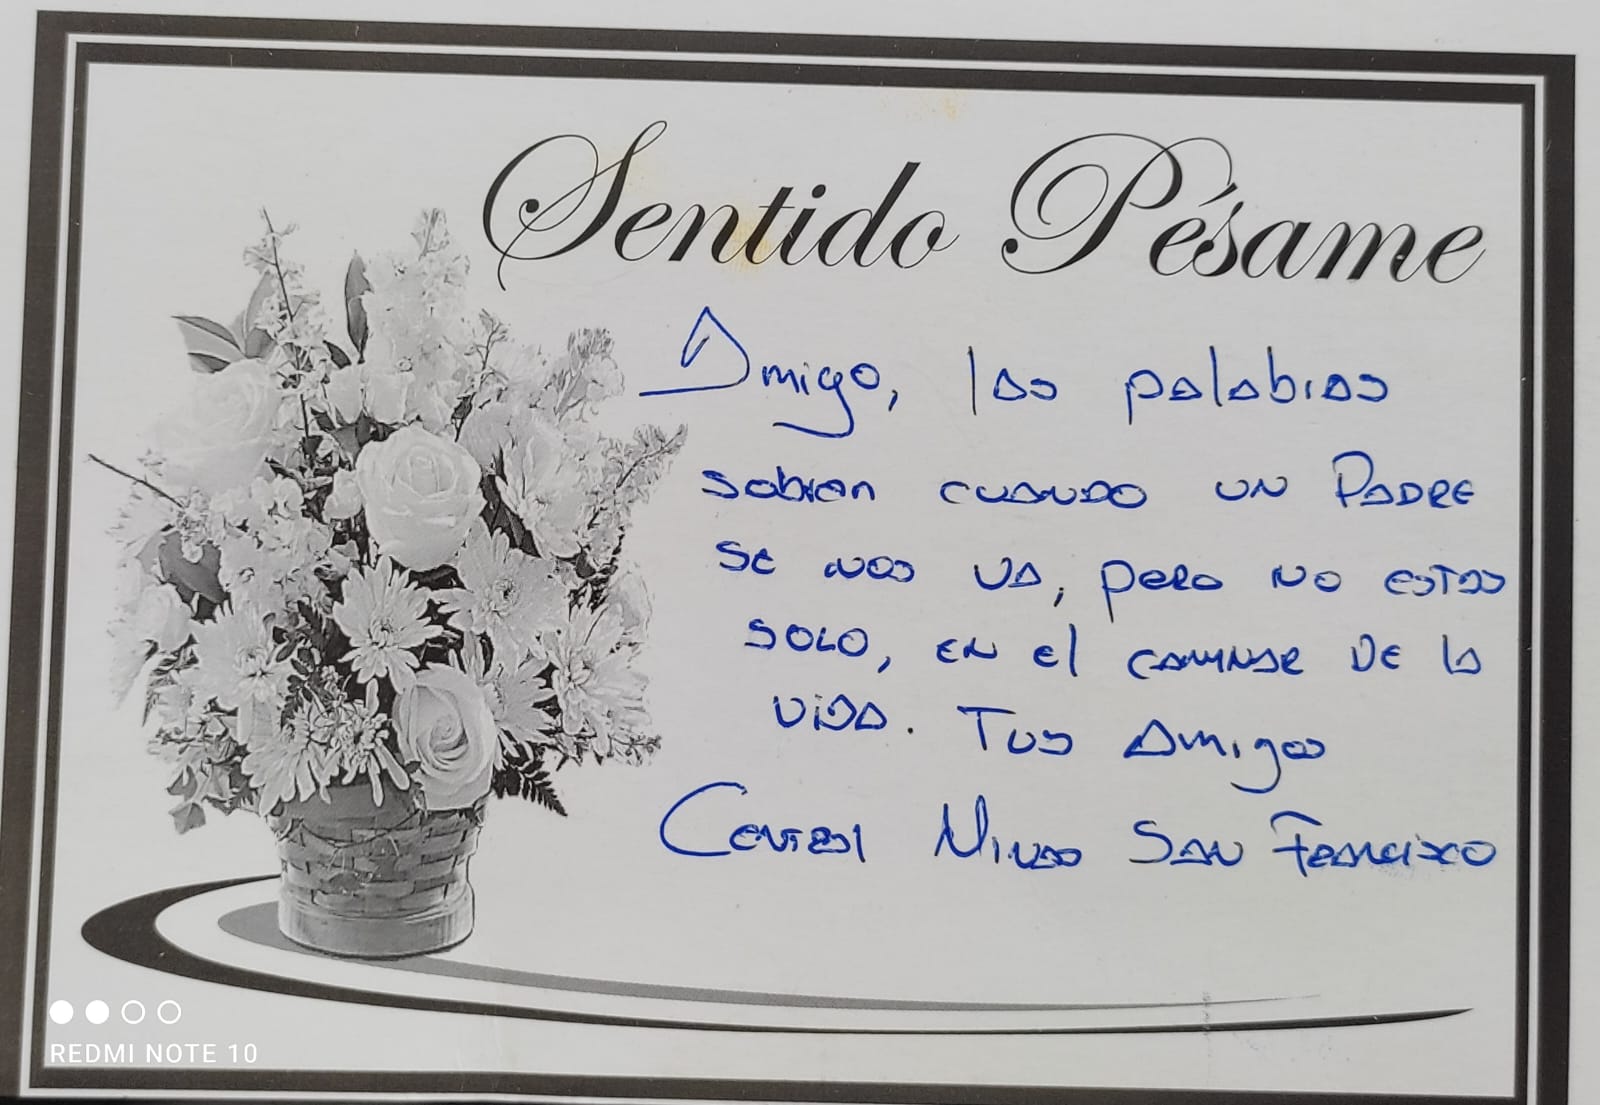 Sentido Pésame
Amigo, las palabras
sobran cuando un Padre
se nos va, pero no estas
solo, en el caminar de la
vida. Tus Amigos
Central Minas San Francisco
REDMI NOTE 10